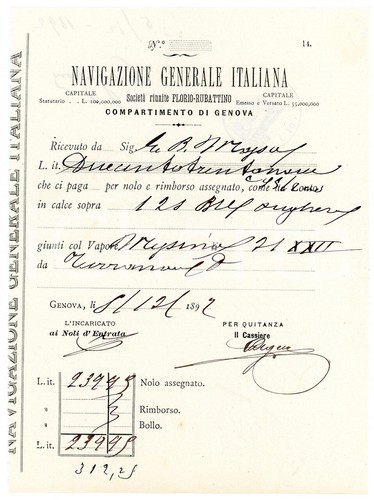 N.º 14.
NAVIGAZIONE GENERALE ITALIANA
CAPITALE
Statutario . . L. 100,000,000
Società riunite FLORIO-RUBATTINO
CAPITALE
Emesso e Versato L. 55,000,000
COMPARTIMENTO DI GENOVA
Ricevuto da Sig.
L. it. Duecentotrentanove
che ci paga per nolo e rimborso assegnato, come
in calce sopra 121
giunti col Vapore 21 XXII
da
GENOVA, li 5/12/1892
L'INCARICATO
ai Noli d'Entrata
PER QUITANZA
Il Cassiere
L. it. 239 95 Nolo assegnato.
Rimborso.
Bollo.
L. it. 239 95
312,25
NAVIGAZIONE GENERALE ITALIANA